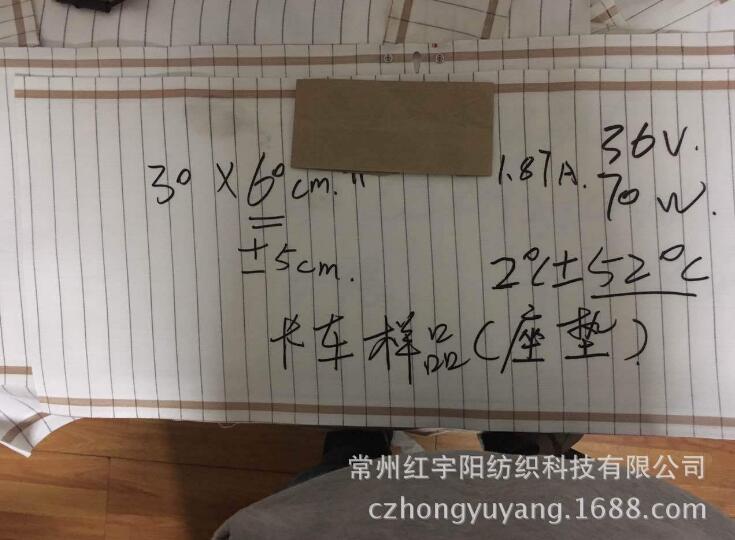 30 × 60cm.
1.87A.
36V.
70W.
±5cm.
2℃±52℃
卡车样品(座垫)
常州红宇阳纺织科技有限公司
czhongyuyang.1688.com